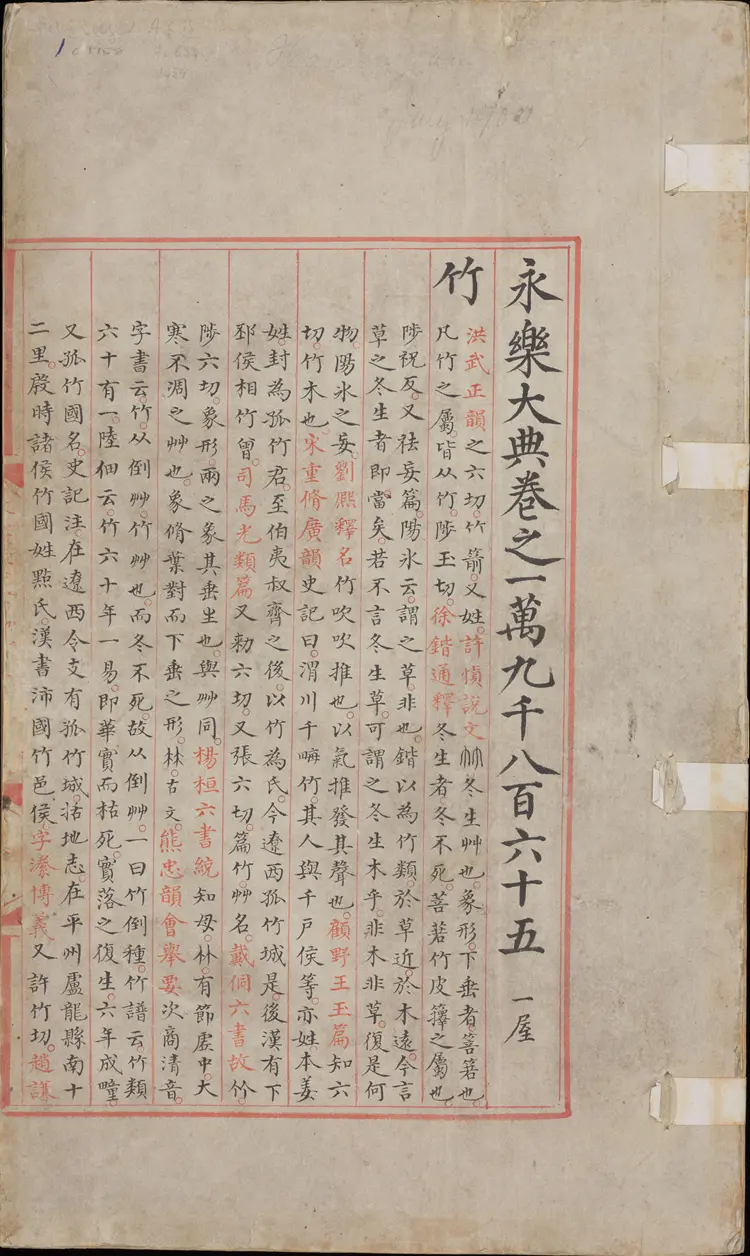 永樂大典卷之一萬九千八百六十五　一屋
竹
洪武正韻之六切。竹箭。又姓。許愼說文冬生艸也。象形。下垂者箁箬也。
凡竹之屬。皆从竹。陟玉切。徐鍇通釋冬生者冬不死。箁箬竹皮籜之屬也。
陟祝反。又祛妄篇。陽氷云。謂之草。非也。鍇以為竹類。於草近。於木遠。今言
草之冬生者即當矣。若不言冬生草。可謂之冬生木乎。非木非草。復是何
物。陽氷之妄。劉熈釋名竹吹吹推也。以氣推發其聲也。顧野王玉篇知六
切。竹木也。宋重脩廣韻史記曰。渭川千畮竹。其人與千戶侯等。亦姓。本姜
姓。封為孤竹君。至伯夷叔齊之後。以竹為氏。今遼西孤竹城是。後漢有下
邳侯相竹曾。司馬光類篇又勑六切。又張六切。篇竹。艸名。戴侗六書故竹
陟六切。象形。兩之象其垂生也。與艸同。楊桓六書統知母。林。有節處中。大
寒不凋之艸也。象脩葉對而下垂之形。林。古文。熊忠韻會舉要次商清音。
字書云。竹。从倒艸。竹艸也。而冬不死。故从倒艸。一曰竹倒種。竹譜云竹類
六十有一。陸佃云。竹六十年一易。即華實而枯死。實落之復生。六年成疃。
又孤竹國名。史記注。在遼西令支有孤竹城。括地志。在平州盧龍縣南十
二里。殷時諸侯竹國姓㸃氏。漢書沛國竹邑侯。字潫博義又許竹切。趙謙